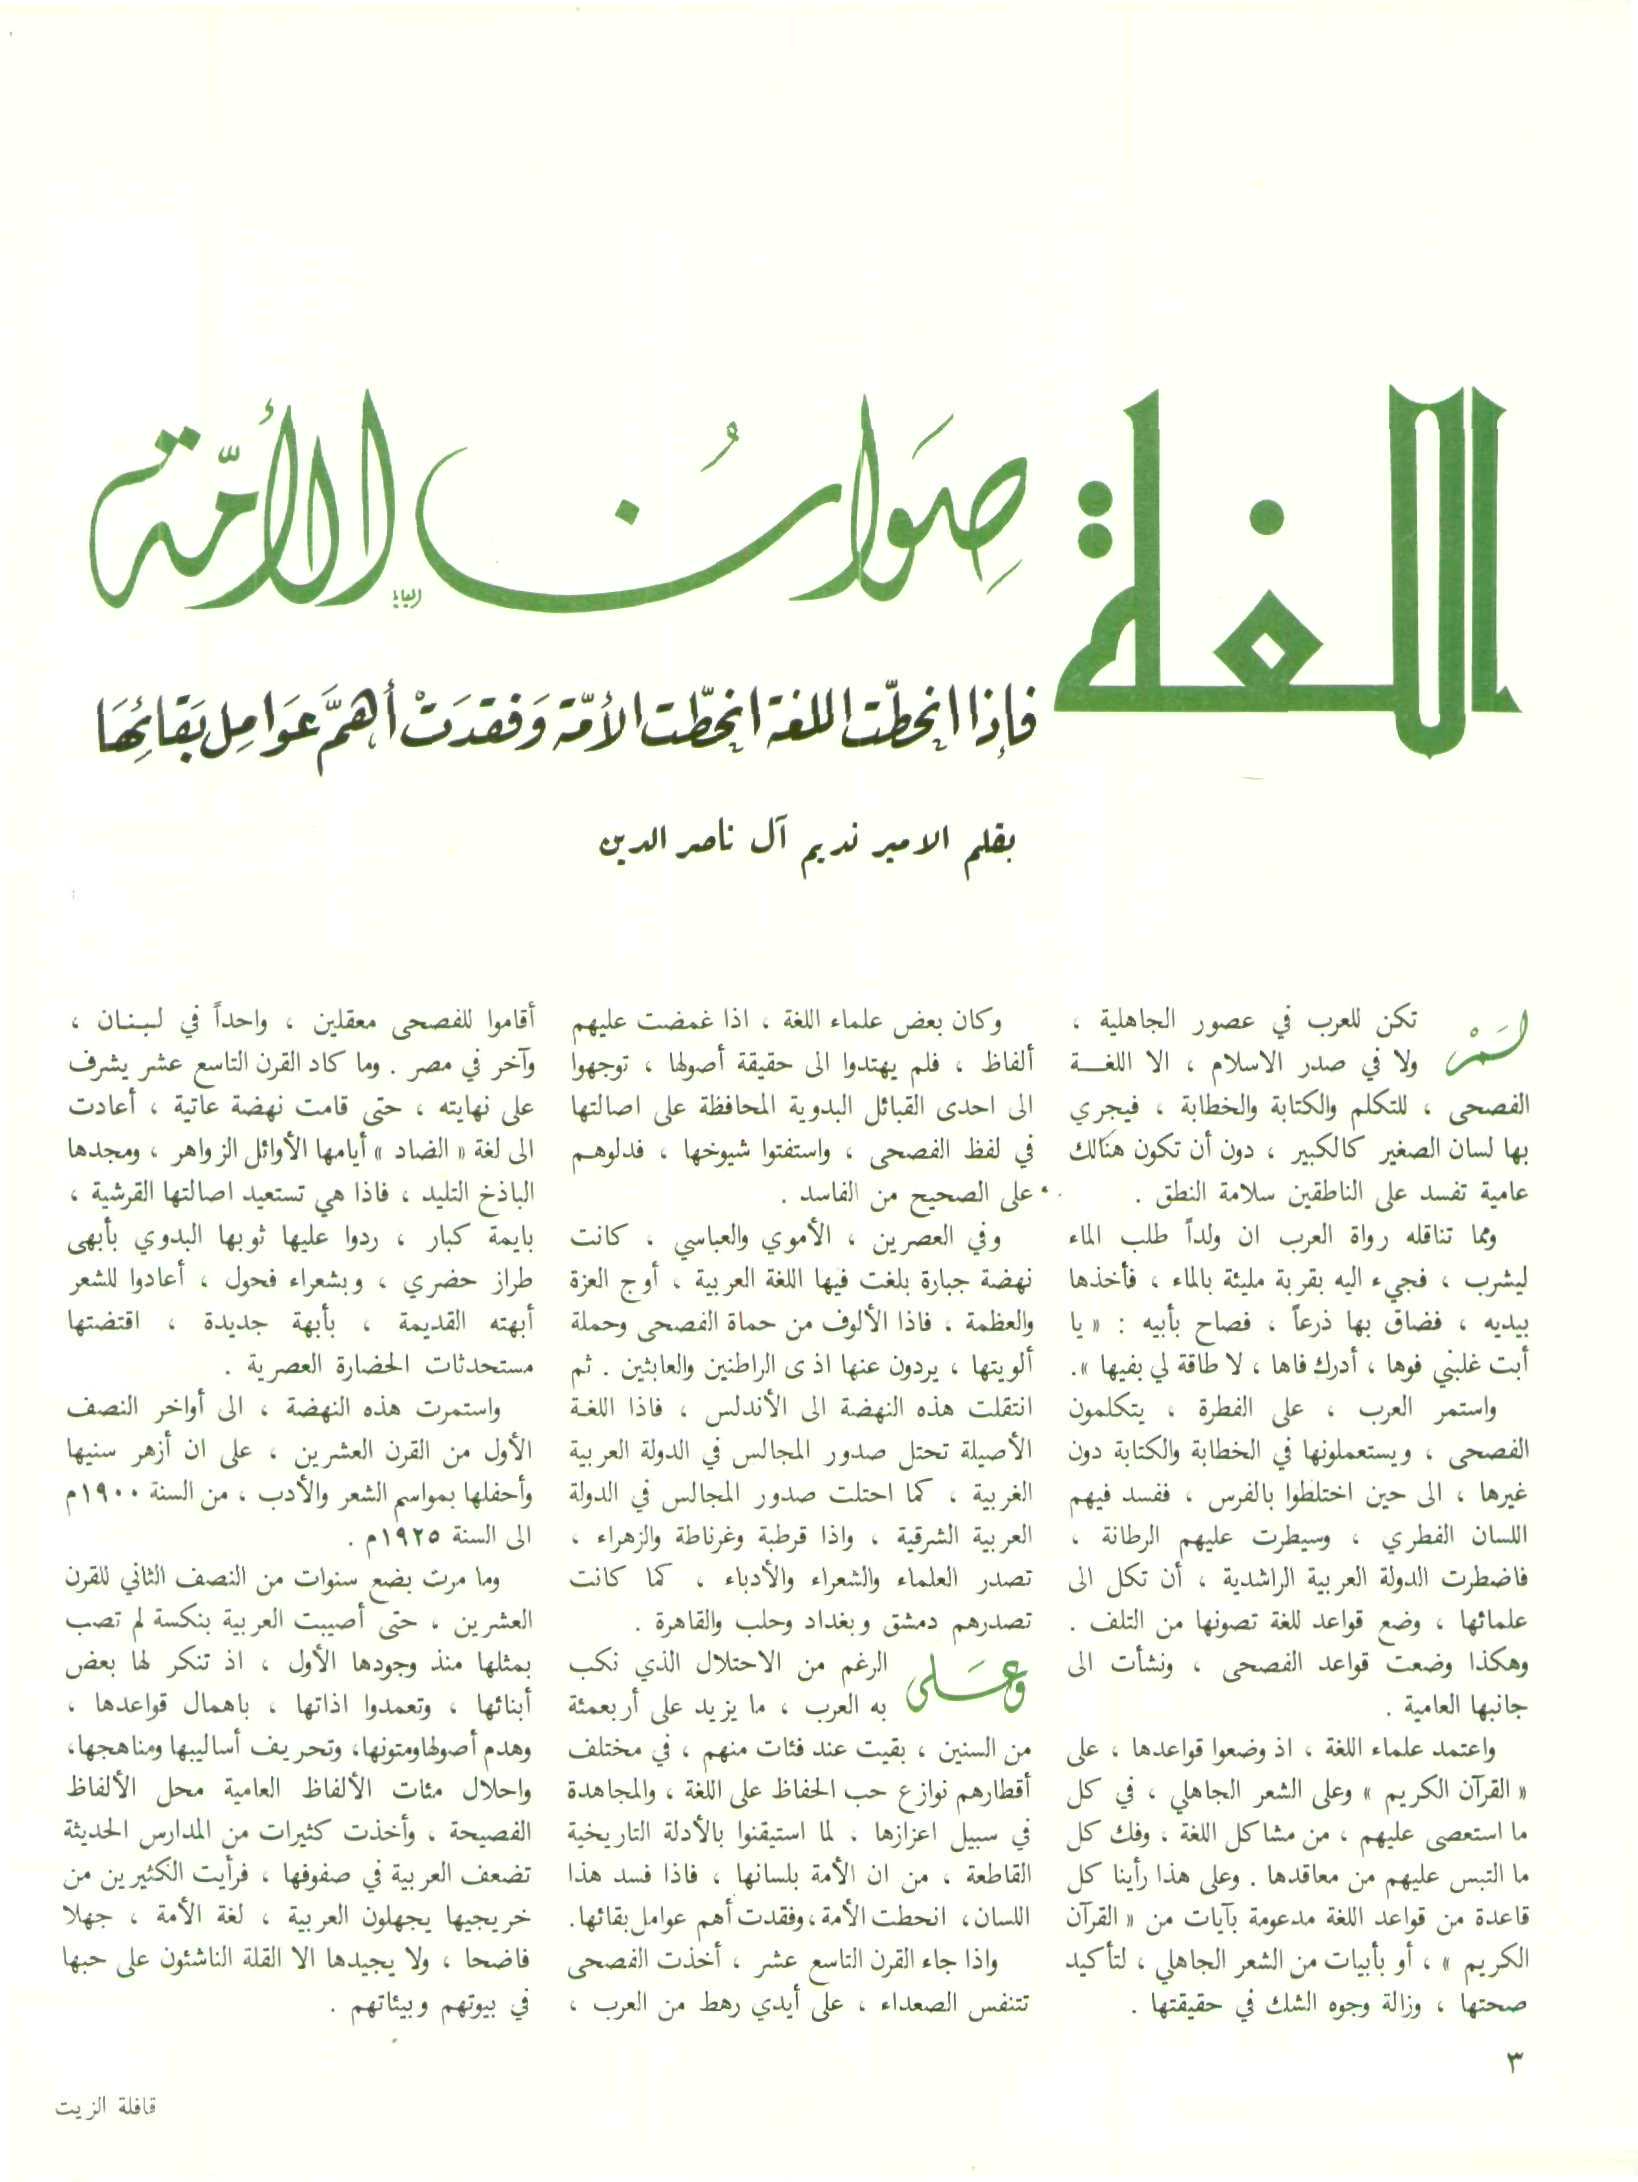 اللغة صِوَانُ الأمّة
فإذا انحطّت اللغة انحطّت الأمّة وَفقدَتْ أهمَّ عوَامِل بَقائِهَا
بقلم الامير نديم آل ناصر الدين
لَمْ تكن للعرب في عصور الجاهلية ،
ولا في صدر الاسلام ، الا اللغة
الفصحى ، للتكلم والكتابة والخطابة ، فيجري
بها لسان الصغير كالكبير ، دون أن تكون هنالك
عامية تفسد على الناطقين سلامة النطق .
ومما تناقله رواة العرب ان ولداً طلب الماء
ليشرب ، فجيء اليه بقربة مليئة بالماء ، فأخذها
بيديه ، فضاق بها ذرعاً ، فصاح بأبيه : « يا
أبت غلبني فوها ، أدرك فاها ، لا طاقة لي بفيها ».
واستمر العرب ، على الفطرة ، يتكلمون
الفصحى ، ويستعملونها في الخطابة والكتابة دون
غيرها ، الى حين اختلطوا بالفرس ، ففسد فيهم
اللسان الفطري ، وسيطرت عليهم الرطانة ،
فاضطرت الدولة العربية الراشدية ، أن تكل الى
علمائها ، وضع قواعد للغة تصونها من التلف .
وهكذا وضعت قواعد الفصحى ، ونشأت الى
جانبها العامية .
واعتمد علماء اللغة ، اذ وضعوا قواعدها ، على
« القرآن الكريم » وعلى الشعر الجاهلي ، في كل
ما استعصى عليهم ، من مشاكل اللغة ، وفك كل
ما التبس عليهم من معاقدها . وعلى هذا رأينا كل
قاعدة من قواعد اللغة مدعومة بآيات من « القرآن
الكريم » ، أو بأبيات من الشعر الجاهلي ، لتأكيد
صحتها ، وزالة وجوه الشك في حقيقتها .
وكان بعض علماء اللغة ، اذا غمضت عليهم
ألفاظ ، فلم يهتدوا الى حقيقة أصولها ، توجهوا
الى احدى القبائل البدوية المحافظة على اصالتها
في لفظ الفصحى ، واستفتوا شيوخها ، فدلوهم
على الصحيح من الفاسد .
وفي العصرين ، الأموي والعباسي ، كانت
نهضة جبارة بلغت فيها اللغة العربية ، أوج العزة
والعظمة ، فاذا الألوف من حماة الفصحى وحملة
ألويتها ، يردون عنها اذى الراطنين والعابثين . ثم
انتقلت هذه النهضة الى الأندلس ، فاذا اللغة
الأصيلة تحتل صدور المجالس في الدولة العربية
الغربية ، كما احتلت صدور المجالس في الدولة
العربية الشرقية ، واذا قرطبة وغرناطة والزهراء ،
تصدر العلماء والشعراء والأدباء ، كما كانت
تصدرهم دمشق وبغداد وحلب والقاهرة .
وعَلى الرغم من الاحتلال الذي نكب
به العرب ، ما يزيد على أربعمئة
من السنين ، بقيت عند فئات منهم ، في مختلف
أقطارهم نوازع حب الحفاظ على اللغة ، والمجاهدة
في سبيل اعزازها ، لما استيقنوا بالأدلة التاريخية
القاطعة ، من ان الأمة بلسانها ، فاذا فسد هذا
اللسان ، انحطت الأمة ، وفقدت أهم عوامل بقائها.
واذا جاء القرن التاسع عشر ، أخذت الفصحى
تتنفس الصعداء ، على أيدي رهط من العرب ،
أقاموا للفصحى معقلين ، واحداً في لبنان ،
وآخر في مصر . وما كاد القرن التاسع عشر يشرف
على نهايته ، حتى قامت نهضة عاتية ، أعادت
الى لغة « الضاد » أيامها الأوائل الزواهر ، ومجدها
الباذخ التليد ، فاذا هي تستعيد اصالتها القرشية ،
بايمة كبار ، ردوا عليها ثوبها البدوي بأبهى
طراز حضري ، وبشعراء فحول ، أعادوا للشعر
أبهته القديمة ، بأبهة جديدة ، اقتضتها
مستحدثات الحضارة العصرية .
واستمرت هذه النهضة ، الى أواخر النصف
الأول من القرن العشرين ، على ان أزهر سنيها
وأحفلها بمواسم الشعر والأدب ، من السنة ١٩٠٠م
الى السنة ١٩٢٥م .
وما مرت بضع سنوات من النصف الثاني للقرن
العشرين ، حتى أصيبت العربية بنكسة لم تصب
بمثلها منذ وجودها الأول ، اذ تنكر لها بعض
أبنائها ، وتعمدوا اذاتها ، باهمال قواعدها ،
وهدم أصولها ومتونها، وتحريف أساليبها ومناهجها،
واحلال مئات الألفاظ العامية محل الألفاظ
الفصيحة ، وأخذت كثيرات من المدارس الحديثة
تضعف العربية في صفوفها ، فرأيت الكثيرين من
خريجيها يجهلون العربية ، لغة الأمة ، جهلا
فاضحا ، ولا يجيدها الا القلة الناشئون على حبها
في بيوتهم وبيئاتهم .
٣
قافلة الزيت